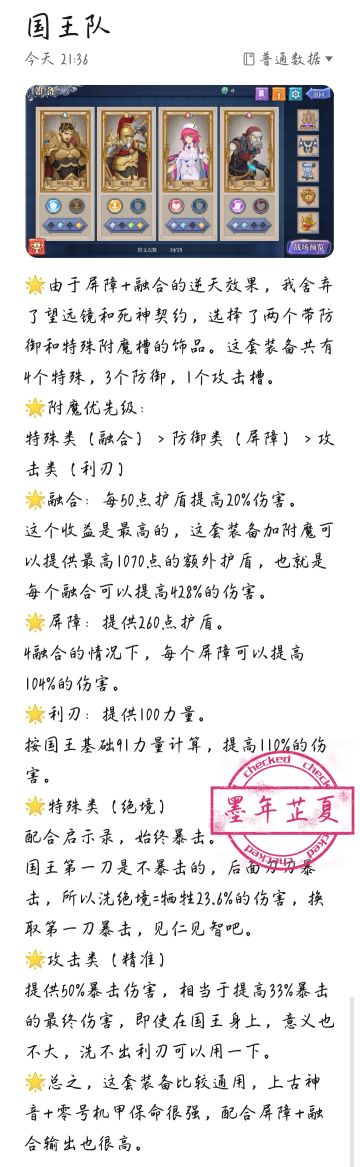 国王队
今天 21:36
普通数据
准备
返回
符文点数 24/25
战场预览
🌟由于屏障+融合的逆天效果，我舍弃
了望远镜和死神契约，选择了两个带防
御和特殊附魔槽的饰品。这套装备共有
4个特殊，3个防御，1个攻击槽。
🌟附魔优先级：
特殊类（融合）>防御类（屏障）>攻
击类（利刃）
🌟融合：每50点护盾提高20%伤害。
这个收益是最高的，这套装备加附魔可
以提供最高1070点的额外护盾，也就是
每个融合可以提高428%的伤害。
🌟屏障：提供260点护盾。
4融合的情况下，每个屏障可以提高
104%的伤害。
🌟利刃：提供100力量。
按国王基础91力量计算，提高110%的伤
害。
🌟特殊类（绝境）
配合启示录，始终暴击。
国王第一刀是不暴击的，后面刀刀暴
击，所以洗绝境=牺牲23.6%的伤害，换
取第一刀暴击，见仁见智吧。
🌟攻击类（精准）
提供50%暴击伤害，相当于提高33%暴击
的最终伤害，即使在国王身上，意义也
不大，洗不出利刃可以用一下。
🌟总之，这套装备比较通用，上古神
音+零号机甲保命很强，配合屏障+融
合输出也很高。
checked checked
墨年芷夏
checked checked